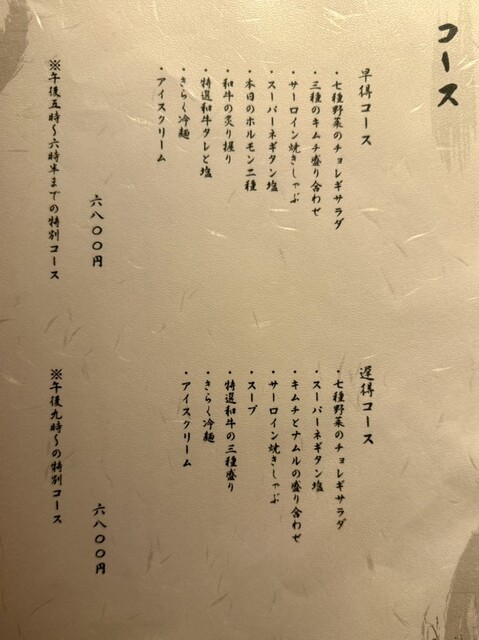 コース
早得コース
・七種野菜のチョレギサラダ
・三種のキムチ盛り合わせ
・サーロイン焼きしゃぶ
・スーパーネギタン塩
・本日のホルモン二種
・和牛の炙り握り
・特選和牛タレと塩
・きらく冷麺
・アイスクリーム
六八〇〇円
※午後五時〜六時半までの特別コース
遅得コース
・七種野菜のチョレギサラダ
・スーパーネギタン塩
・キムチとナムルの盛り合わせ
・サーロイン焼きしゃぶ
・スープ
・特選和牛の三種盛り
・きらく冷麺
・アイスクリーム
六八〇〇円
※午後九時〜の特別コース